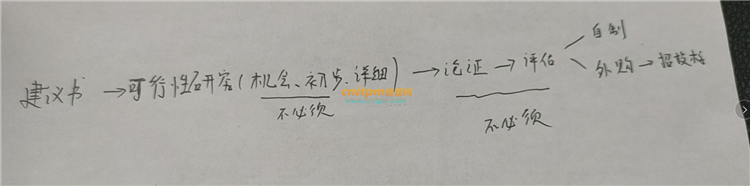 建议书 → 可行性研究(机会、初步、详细) → 论证 → 评估
自制
外购 → 招投标
不必须
不必须